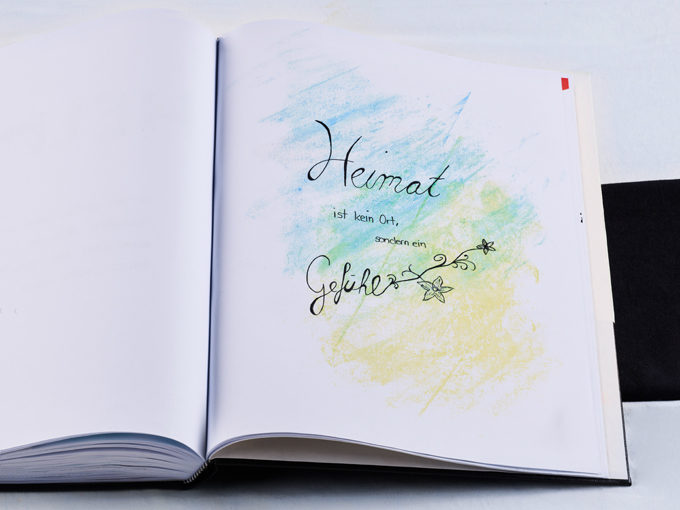 Heimat
ist kein Ort,
sondern ein
Gefühl